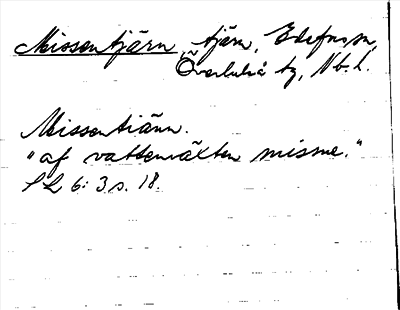 Missentjärn, tjärn, Edefors sn,
Överluleå tg, Nb. l.
Missentiänn.
"af vattenväxten missne."
SL 6: 3 s. 18.